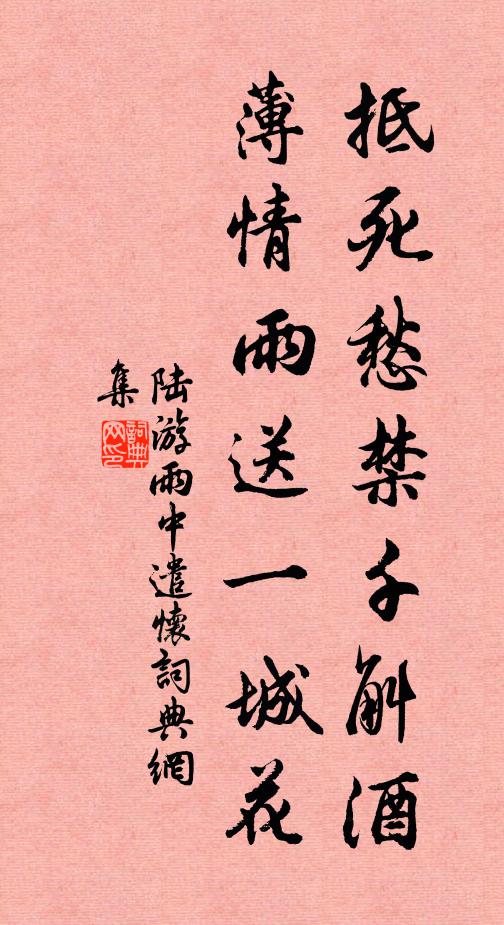 抵死愁禁千斛酒
薄情雨送一城花
陆游雨中遣懷詞典網
集
詞典
网印